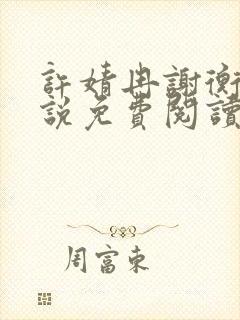 許婧冉謝衡
説免費閱讀
周富東